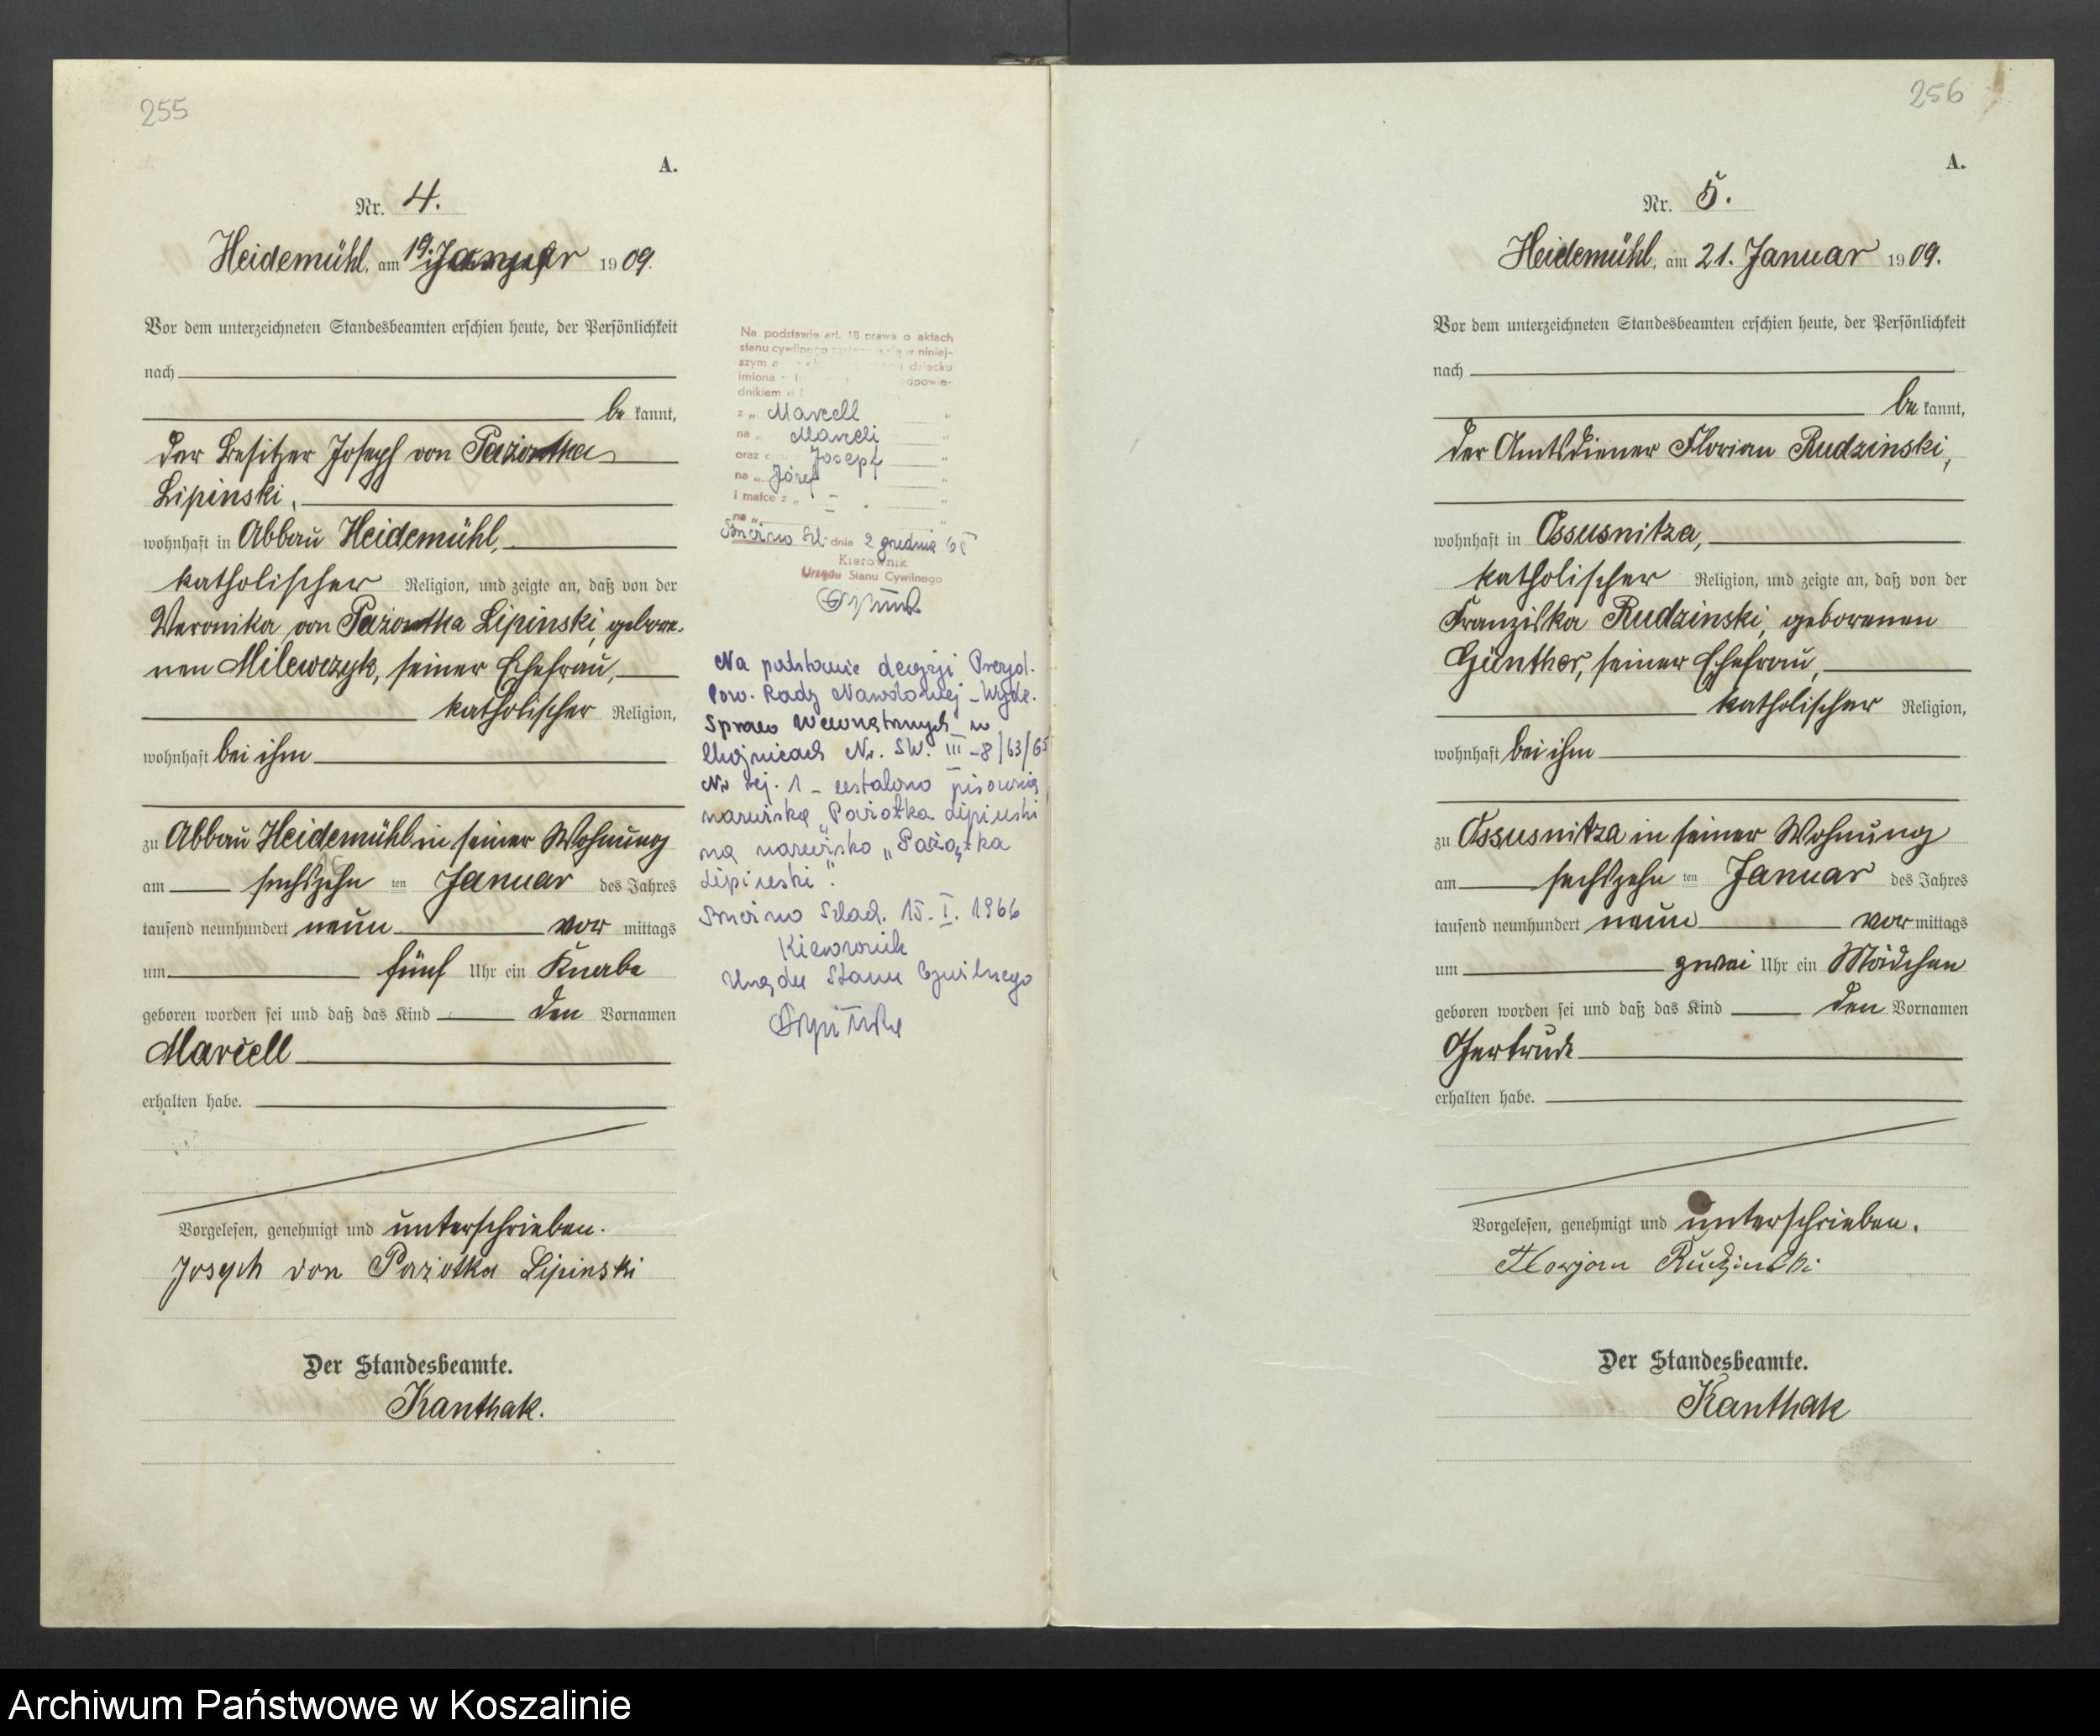 255
A.
Nr. 4.
Heidemühl, am 19. Januar 1909.
Vor dem unterzeichneten Standesbeamten erschien heute, der Persönlichkeit
nach
be kannt,
der Besitzer Joseph von Pazontka
Lipinski,
wohnhaft in Abbau Heidemühl,
katholischer Religion, und zeigte an, daß von der
Veronika von Pazontka Lipinski, gebore-
nen Milewczyk, seiner Ehefrau,
katholischer Religion,
wohnhaft bei ihm
zu Abbau Heidemühl in seiner Wohnung
am sechszehn ten Januar des Jahres
tausend neunhundert neun vor mittags
um fünf Uhr ein Knabe
geboren worden sei und daß das Kind den Vornamen
Marcell
erhalten habe.
Vorgelesen, genehmigt und unterschrieben.
Joseph von Pazotka Lipinski
Der Standesbeamte.
Kanthak.
Na podstawie art. 18 prawa o aktach
stanu cywilnego w niniej-
szym dziecku
imiona odpowie-
dnikiem
z „ Marcell "
na „ Marceli "
oraz Joseph "
na „ Józef "
i matce z „ – "
na „ –
dnia 2 grudnia 65
Kierownik
Urzędu Stanu Cywilnego
Na podstawie decyzji Prezyd.
Pow. Rady Narodowej – Wydz.
Spraw Wewnętrznych w
Chojnicach Nr. SW. III – 8/63/65
Nr rej. 1 – ustalono pisownię
nazwiska „Pażotka Lipiński
na nazwisko „Pażątka
Lipiński".
Szlach. 15. I. 1966
Kierownik
Urzędu Stanu Cywilnego
256
A.
Nr. 5.
Heidemühl, am 21. Januar 1909.
Vor dem unterzeichneten Standesbeamten erschien heute, der Persönlichkeit
nach
be kannt,
der Amtsdiener Florian Rudzinski,
wohnhaft in Ossusnitza,
katholischer Religion, und zeigte an, daß von der
Franziska Rudzinski, geborenen
Günther, seiner Ehefrau,
katholischer Religion,
wohnhaft bei ihm
zu Ossusnitza in seiner Wohnung
am sechszehn ten Januar des Jahres
tausend neunhundert neun vor mittags
um zwei Uhr ein Mädchen
geboren worden sei und daß das Kind den Vornamen
Gertrude
erhalten habe.
Vorgelesen, genehmigt und unterschrieben.
Florjan Rudzinski
Der Standesbeamte.
Kanthak
Archiwum Państwowe w Koszalinie